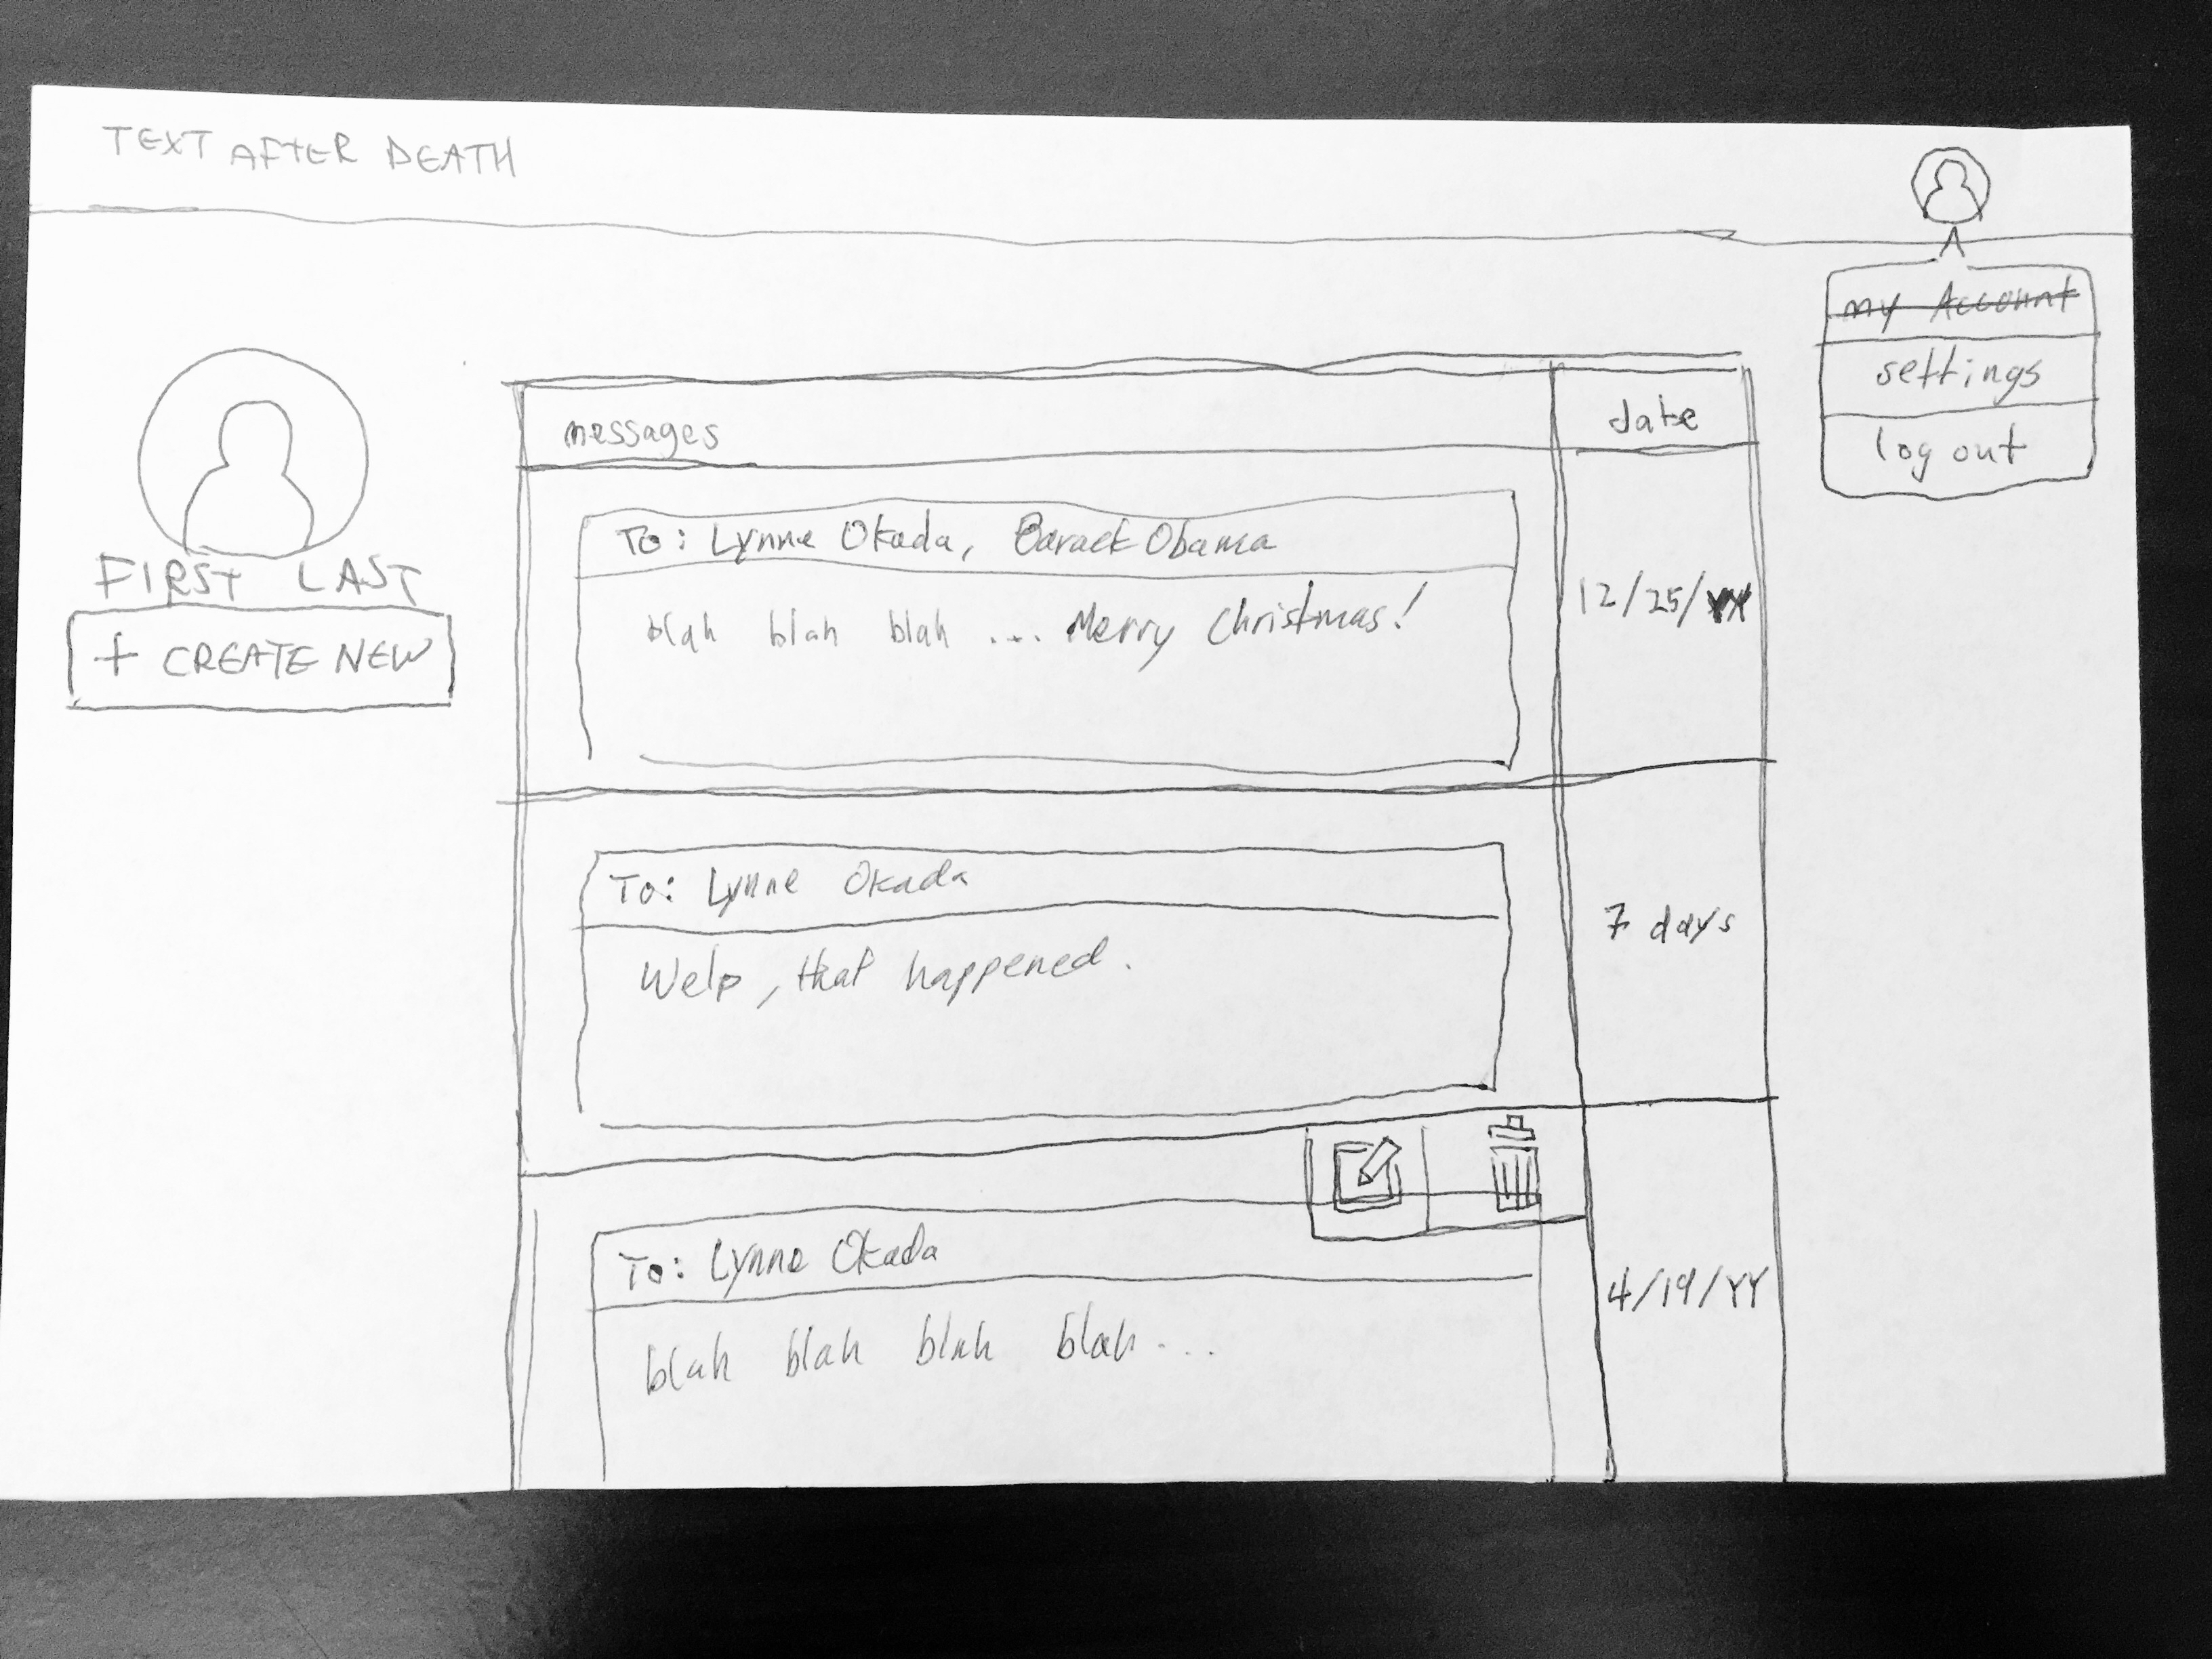 TEXT AFTER DEATH
my Account
settings
log out
FIRST LAST
+ CREATE NEW
messages
date
To: Lynne Okada, Barack Obama
blah blah blah ... Merry Christmas!
12/25/YY
To: Lynne Okada
Welp, that happened.
7 days
To: Lynne Okada
blah blah blah blah ...
4/19/YY